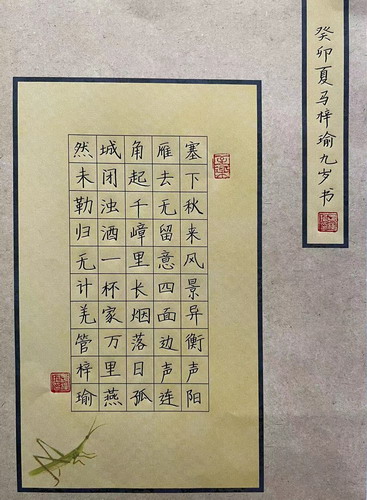 癸卯夏马梓瑜九岁书
塞下秋来风景异衡声阳
雁去无留意四面边声连
角起千嶂里长烟落日孤
城闭浊酒一杯家万里燕
然未勒归无计羌管梓瑜